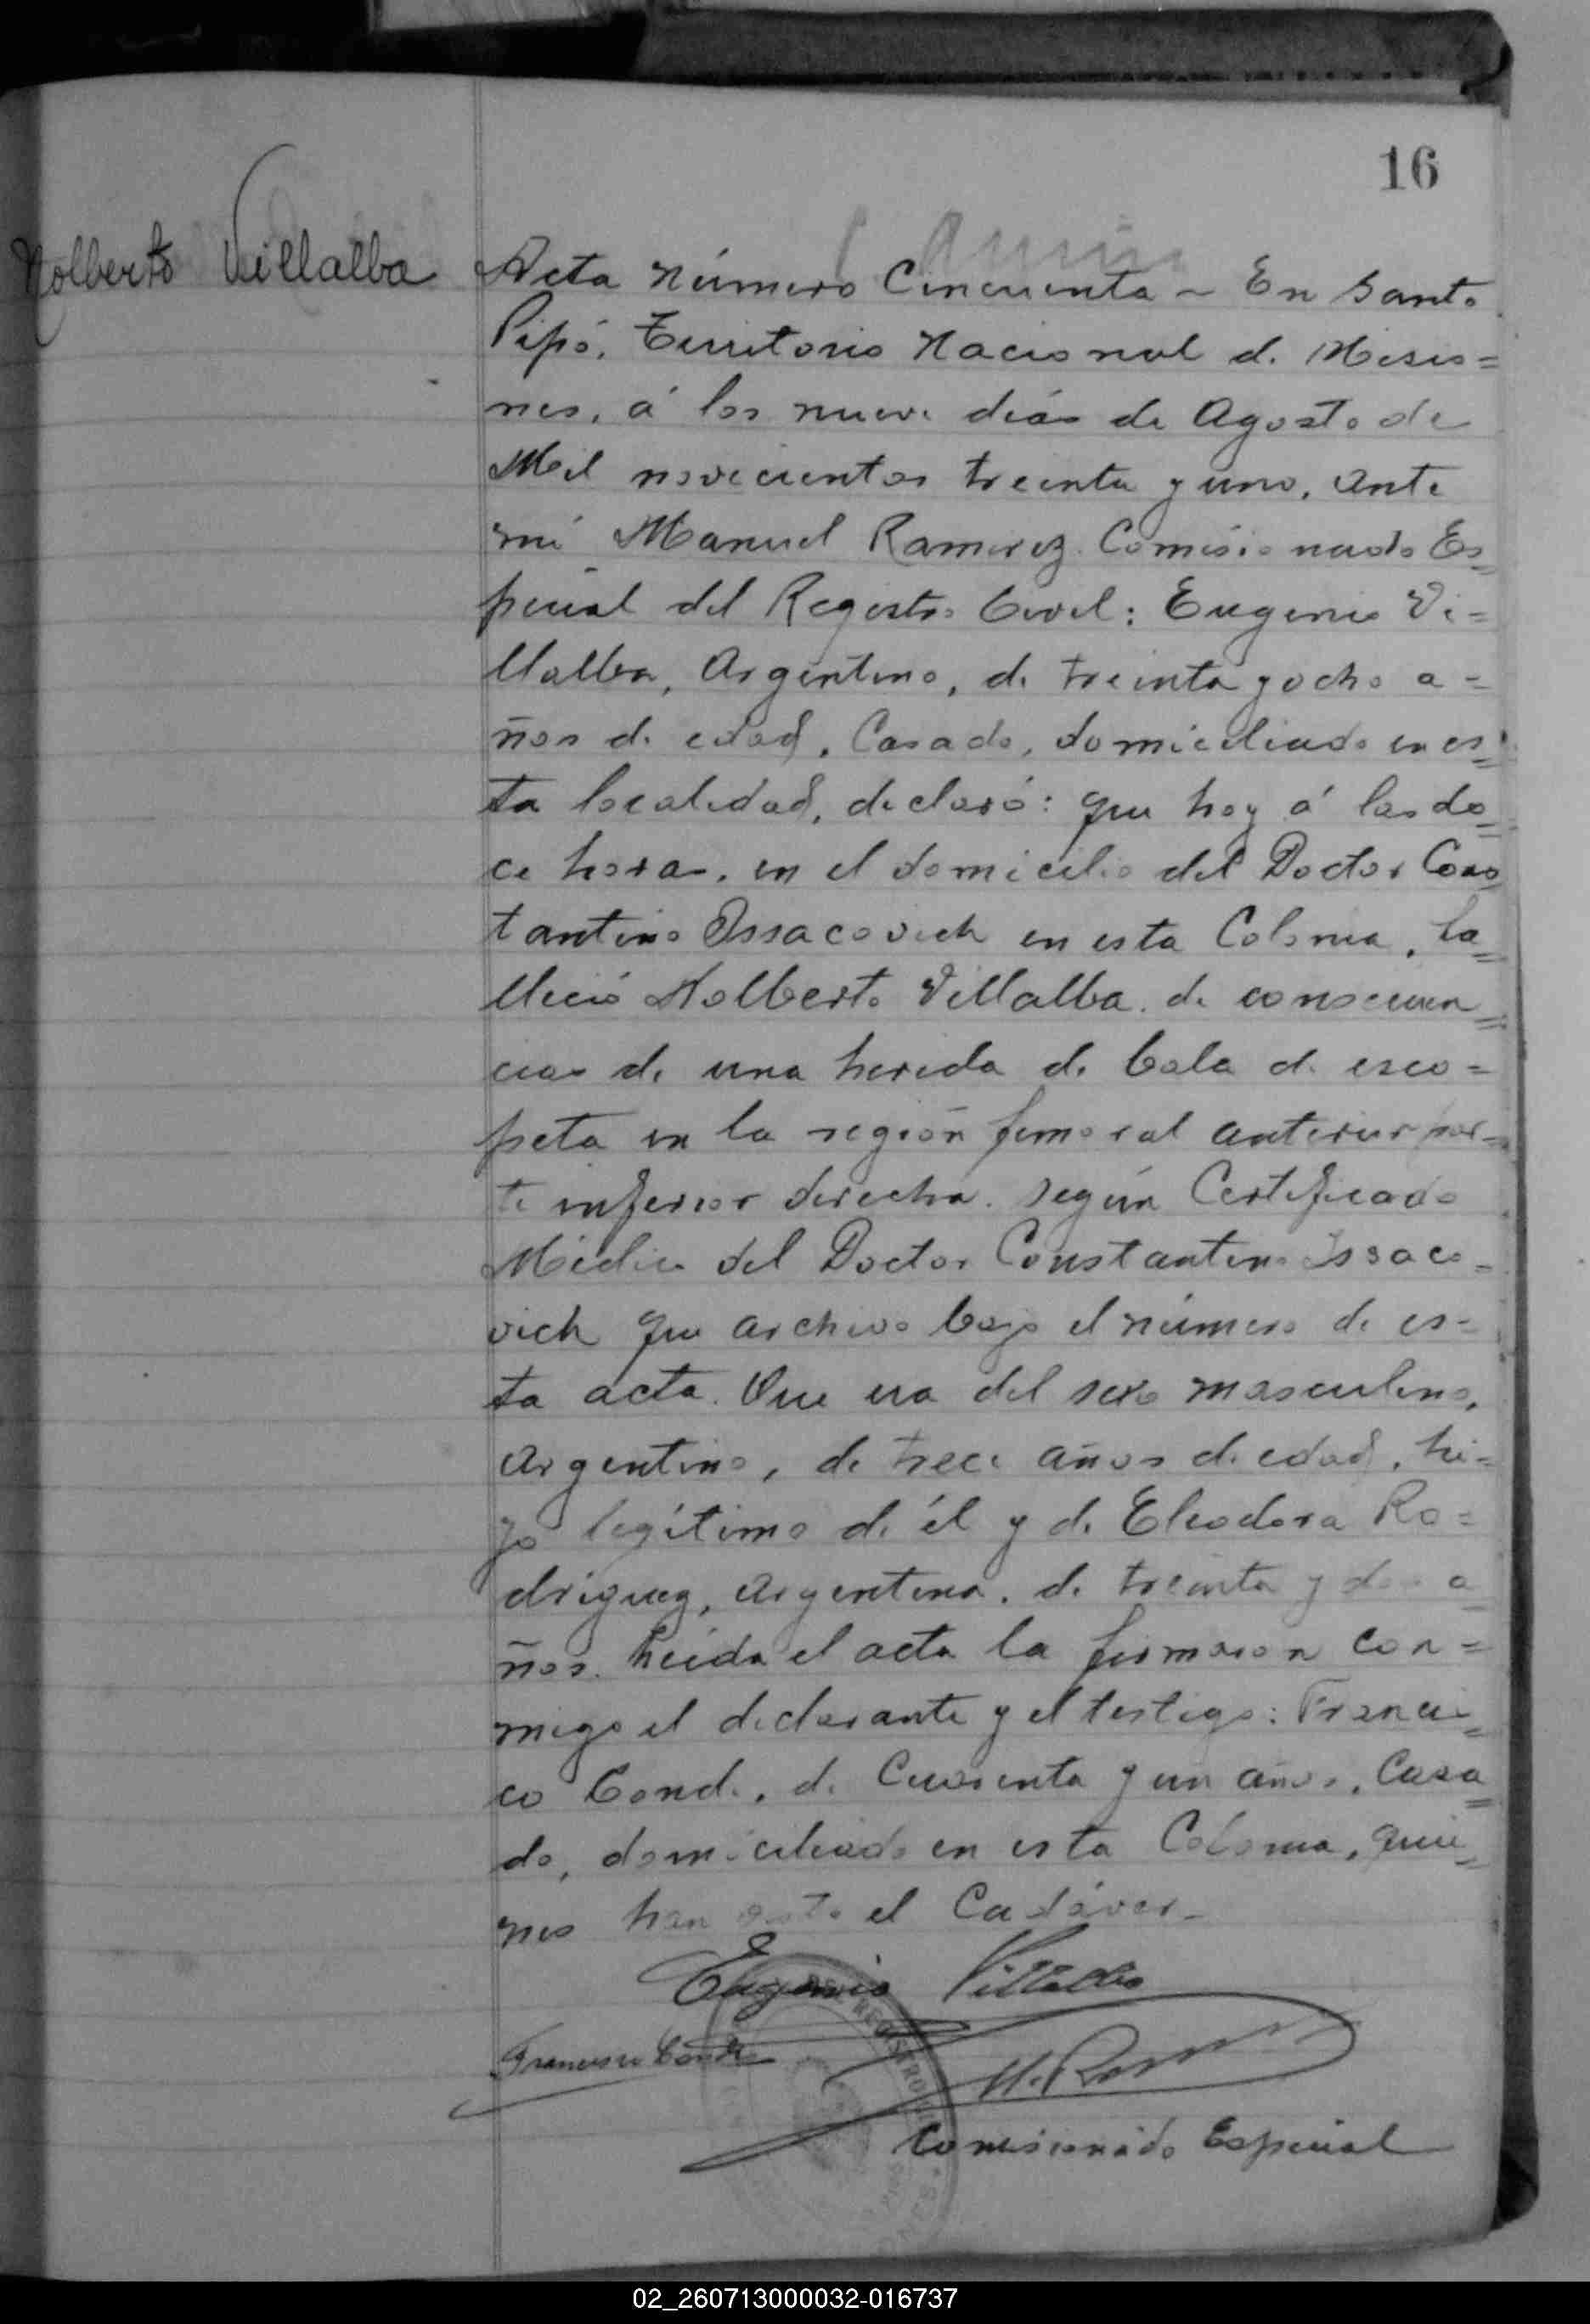 16
Nolberto Villalba
Acta Número Cincuenta - En Santo
Pipó, Territorio Nacional de Misio=
nes, á los nueve dias de Agosto de
Mil novecientos treinta y uno, ante
mi Manuel Ramirez Comisionado Es=
pecial del Registro Civil: Eugenio Vi=
llalba, Argentino, de treinta y ocho a=
ños de edad, Casado, domiciliado en es=
ta localidad, declaró: que hoy á las do=
ce horas, en el domicilio del Doctor Cons=
tantino Issacovich en esta Colonia, fa=
lleció Nolberto Villalba de consecuen=
cias de una herida de bala de esco=
peta en la región femoral anterior par=
te inferior derecha. según Certificado
Médico del Doctor Constantino Issaco=
vich que archivo bajo el número de es=
ta acta. Que era del sexo masculino,
Argentino, de trece años de edad, hi=
jo legítimo de él y de Eleodora Ro=
driguez, Argentina, de treinta y dos a=
ños. Leída el acta la firmaron con=
migo el declarante y el testigo: Francis=
co Conde, de Cuarenta y un años, Casa=
do, domiciliado en esta Colonia, quie=
nes han visto el Cadáver-
Eugenio Villalba
Francisco Conde
M. Ram
Comisionado Especial
DEL REGISTRO
02_260713000032-016737